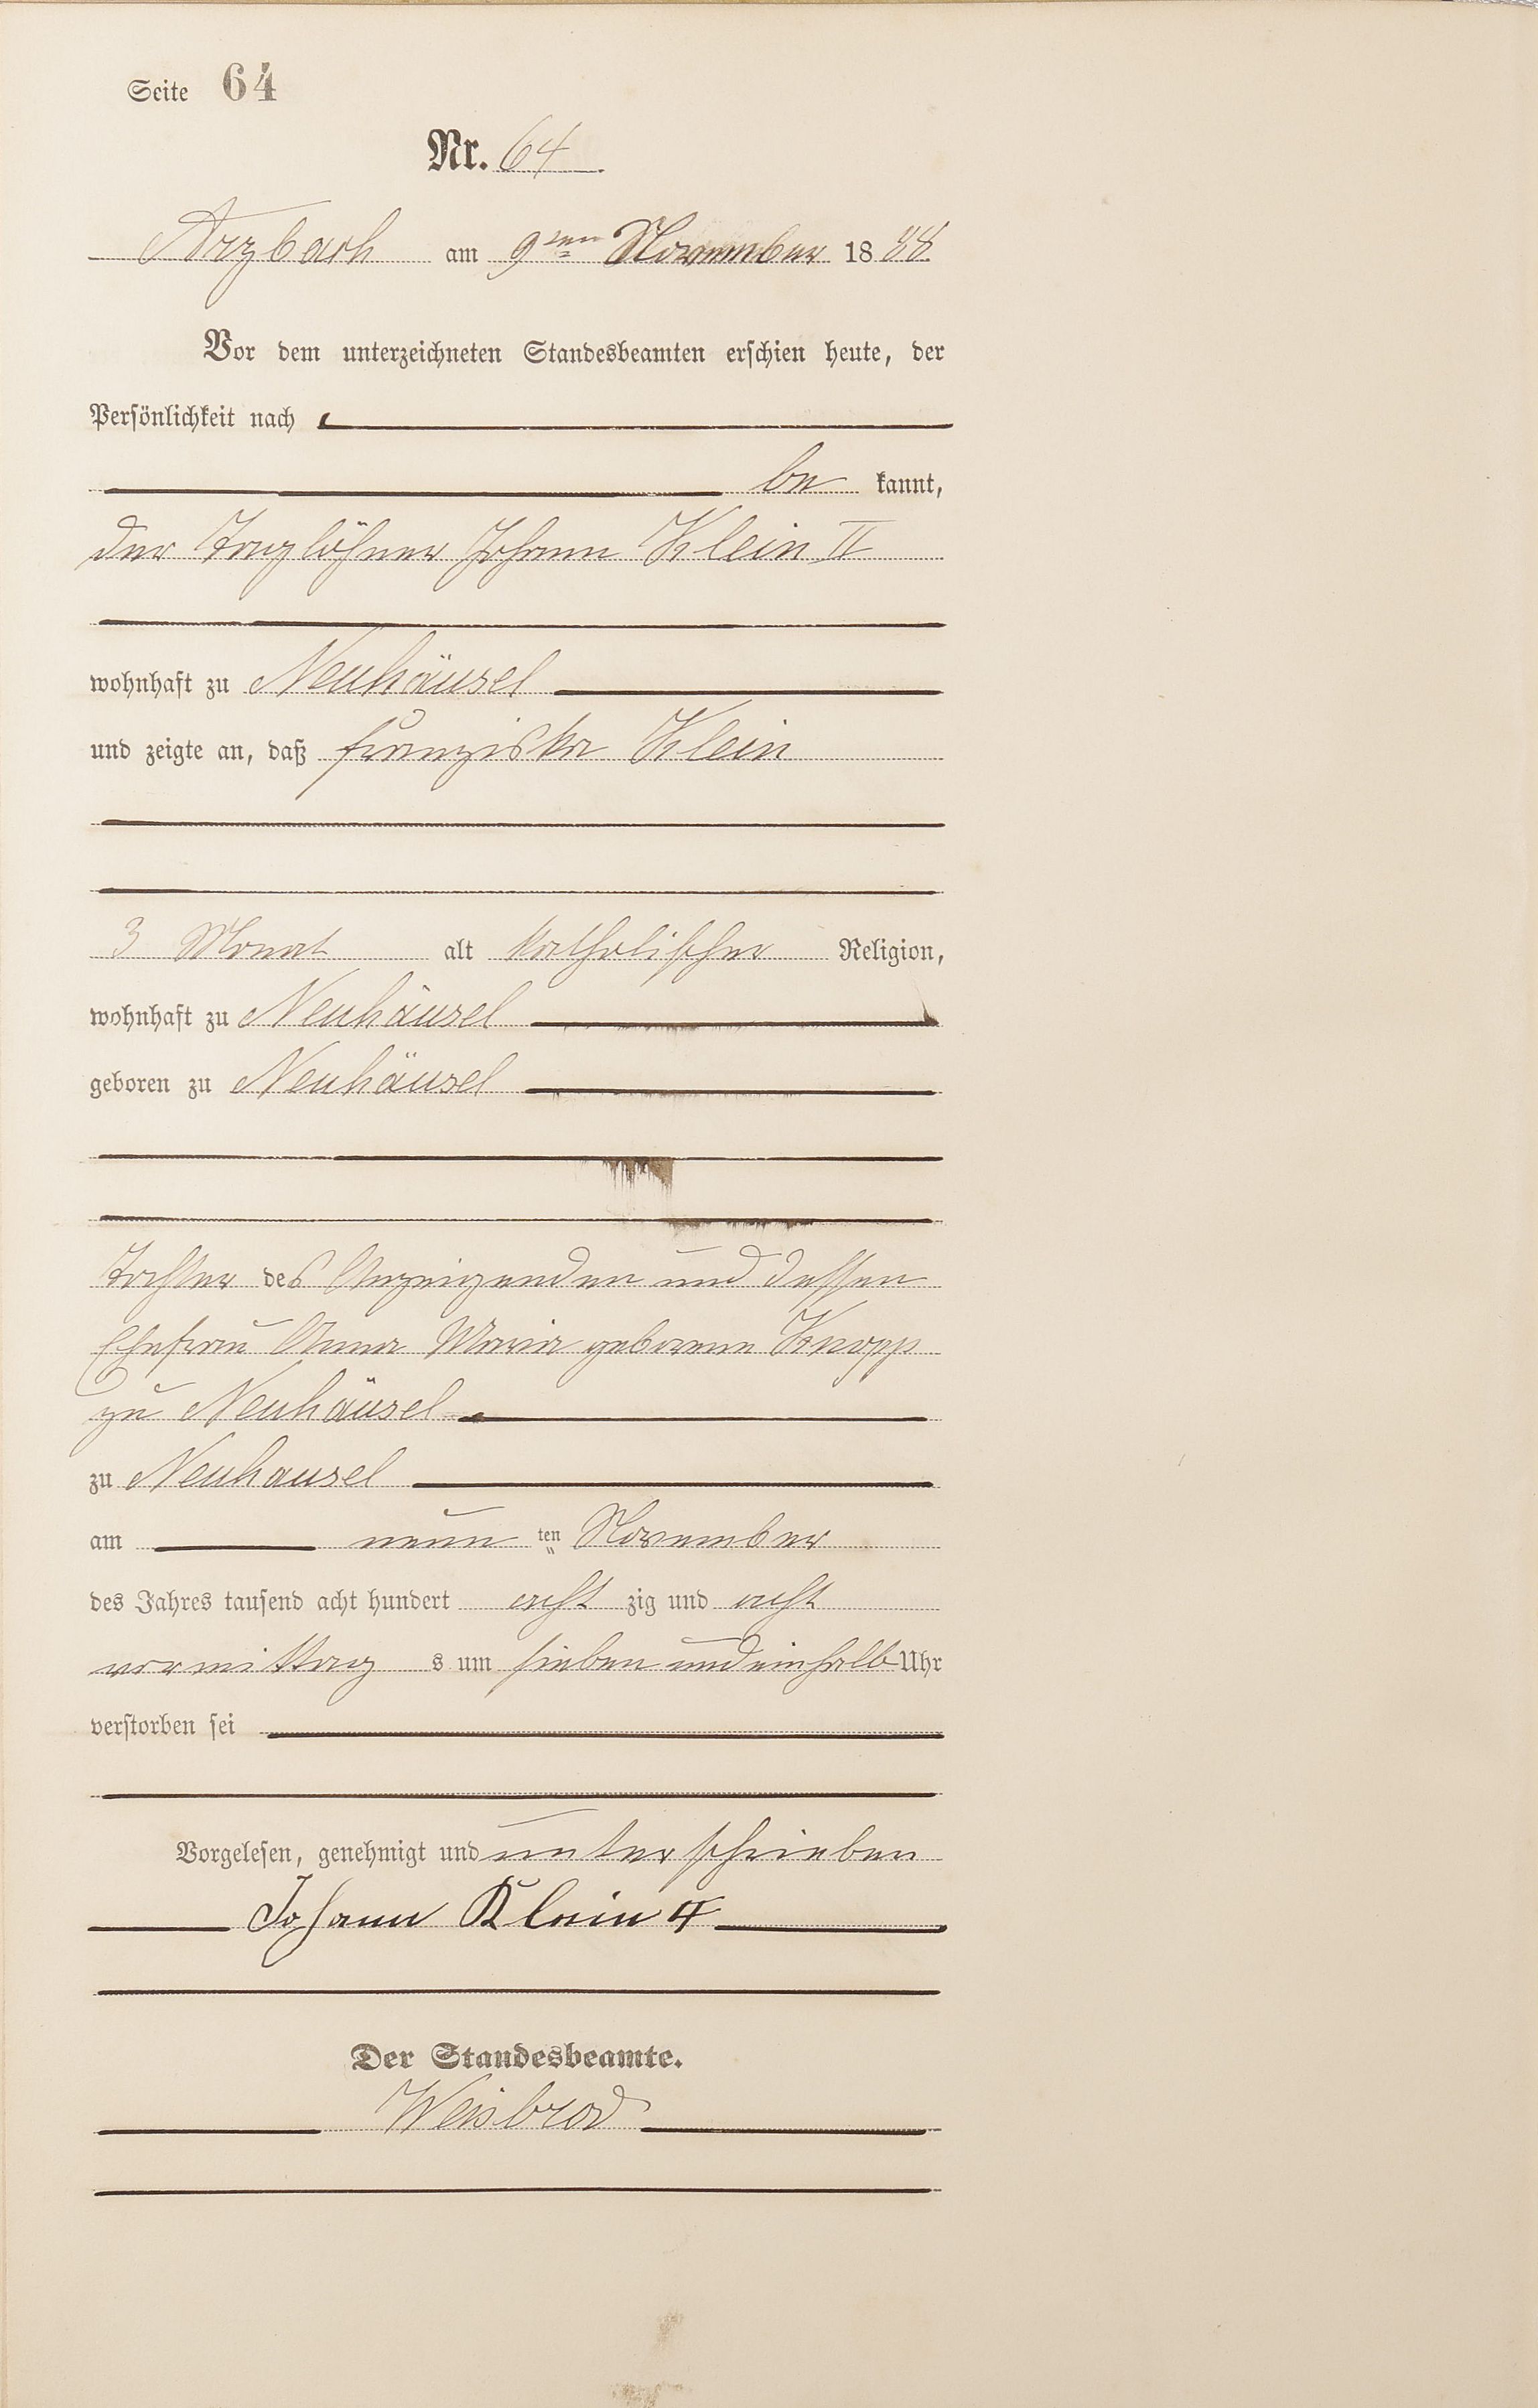 Seite 64
Nr. 64
Arzbach am 9ten November 1888
Vor dem unterzeichneten Standesbeamten erschien heute, der
Persönlichkeit nach
be kannt,
der Taglöhner Johann Klein II
wohnhaft zu Neuhäusel
und zeigte an, daß Franziska Klein
3 Monat alt katholischer Religion,
wohnhaft zu Neuhäusel
geboren zu Neuhäusel
Tochter des Anzeigenden und dessen
Ehefrau Anna Maria geborene Knopp
zu Neuhäusel
zu Neuhausel
am neun ten November
des Jahres tausend acht hundert acht zig und acht
vormittag s um sieben und einhalb Uhr
verstorben sei
Vorgelesen, genehmigt und unterschrieben
Johann Klein
Der Standesbeamte.
Weisbrod